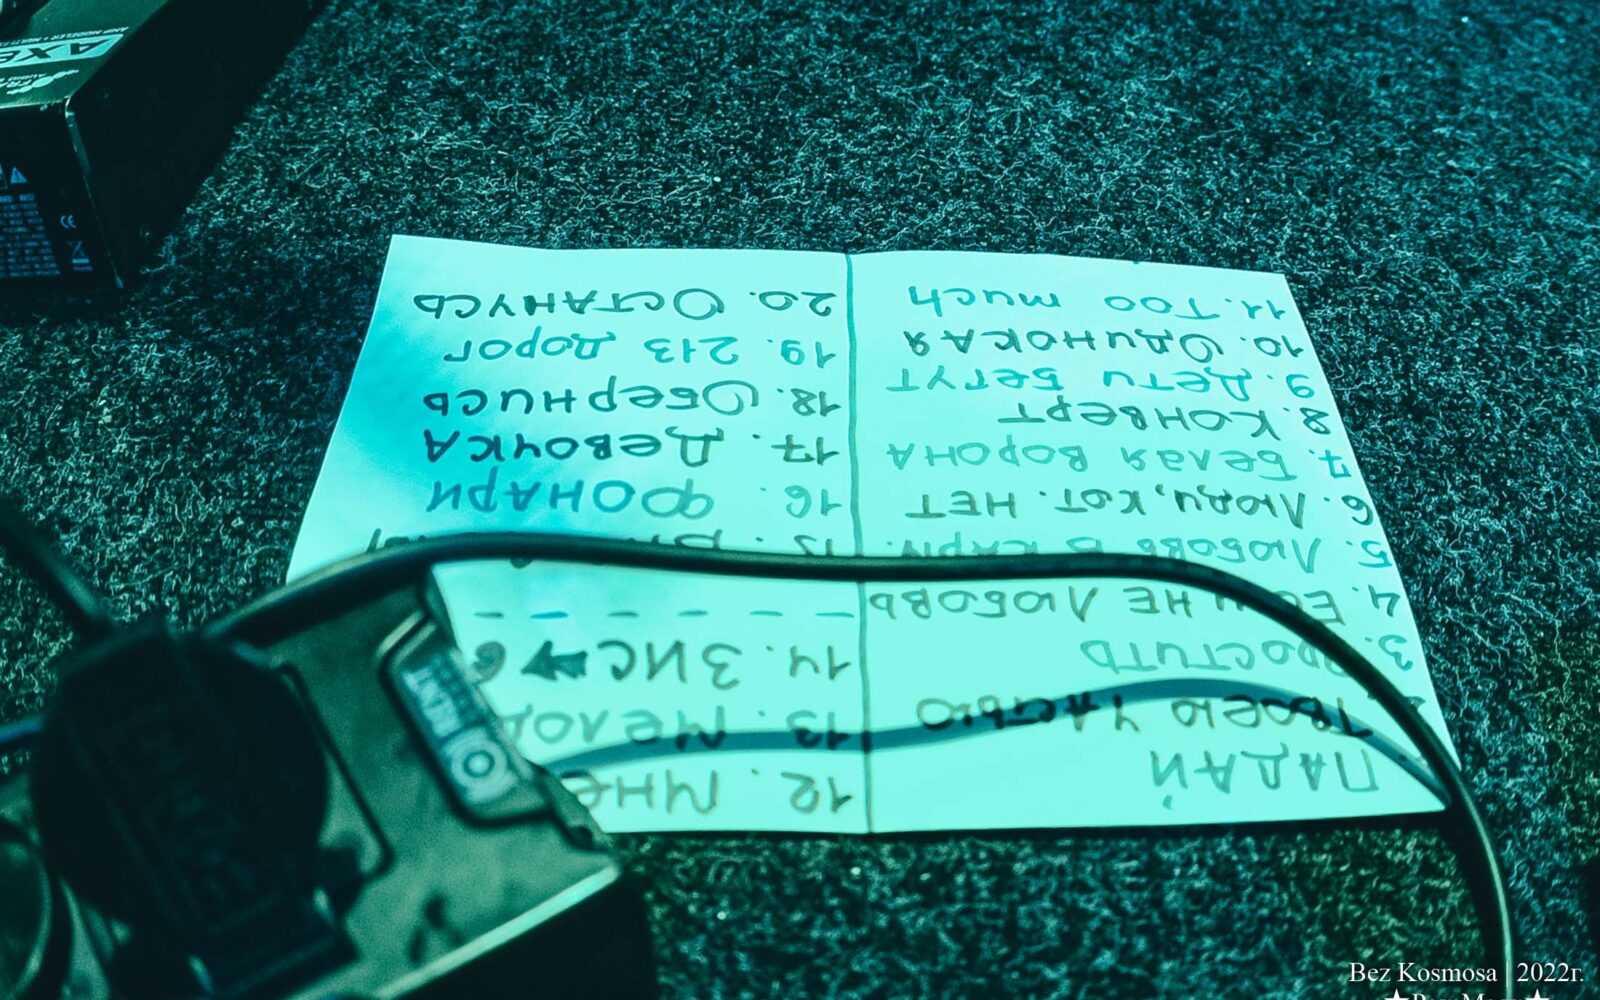 Падай
Твоею частью
3. Простить
4. Если не любовь
5. Любовь в карм.
6. Люди, кот. нет
7. Белая ворона
8. Конверт
9. Дети бегут
10. Одинокая
11. Too much
12. Мне
13. Мелод
14. ЗИС → 6
15.
16. Фонари
17. Девочка
18. Обернись
19. 213 дорог
20. Останусь
CE
Bez Kosmosa | 2022г.